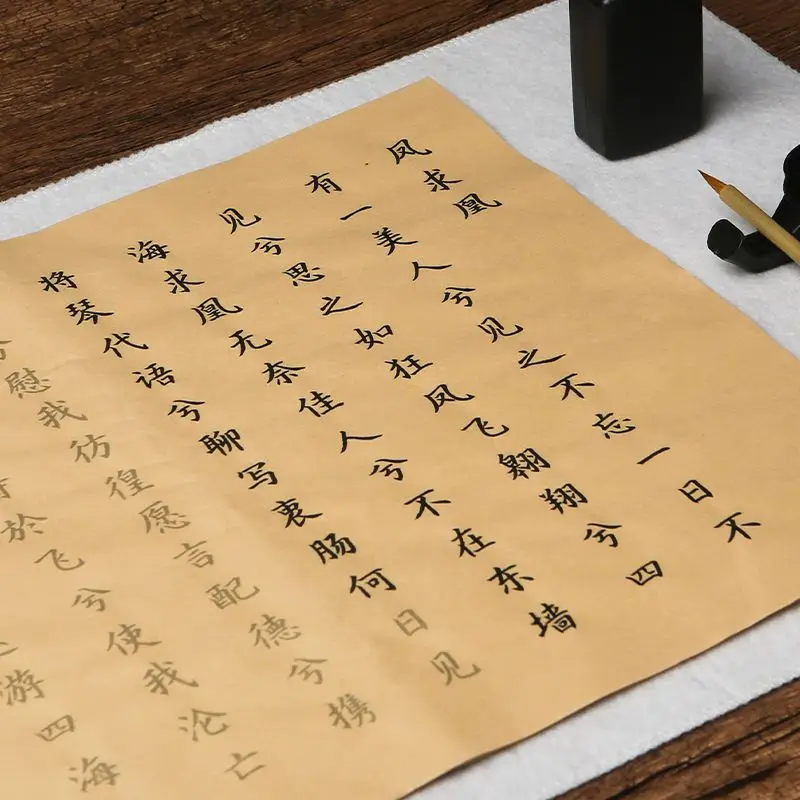 凤求凰
有一美人兮见之不忘一日不
见兮思之如狂凤飞翱翔兮四
海求凰无奈佳人兮不在东墙
将琴代语兮聊写衷肠何日见
兮慰我彷徨愿言配德兮携
於飞兮使我沦亡
游四海